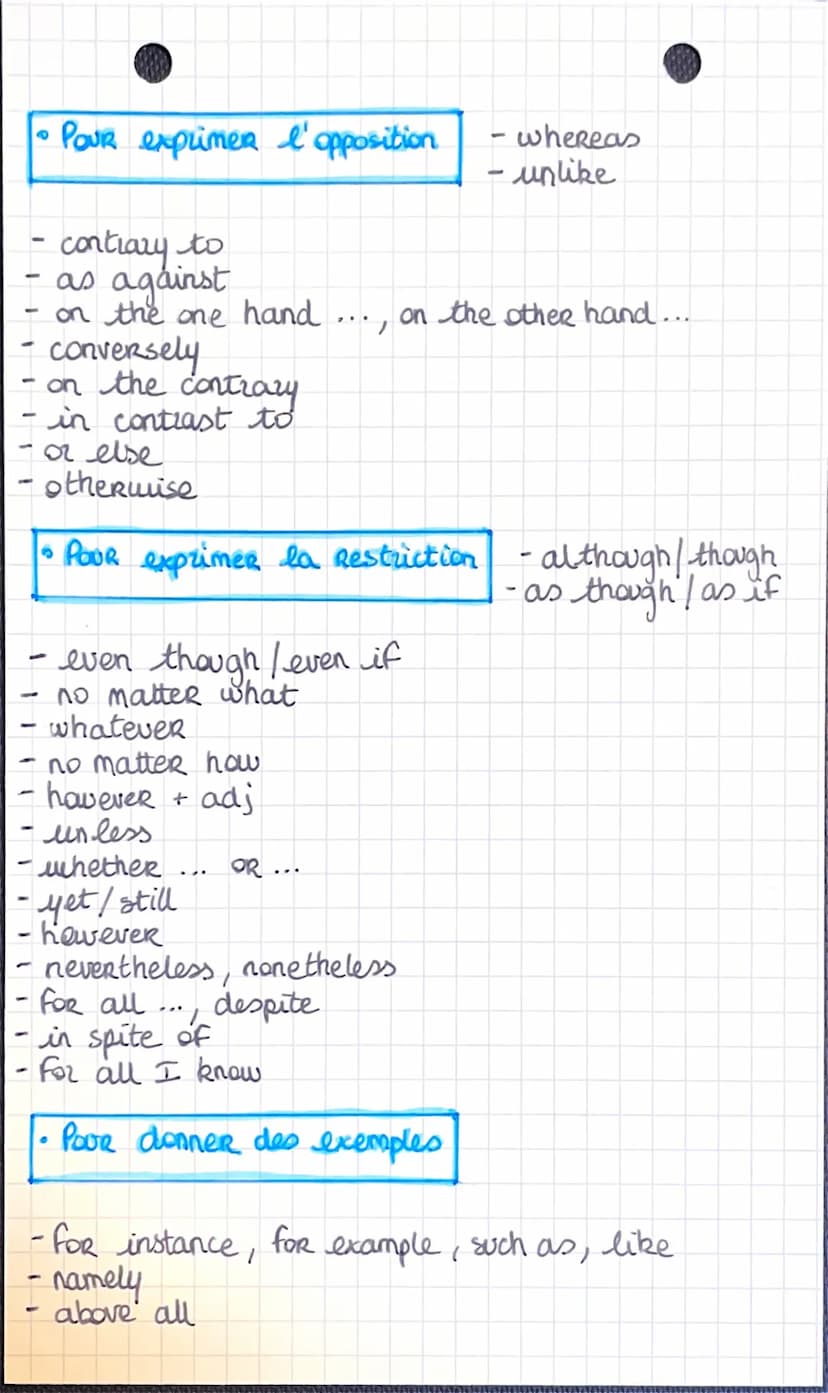 • Pour exprimer l'opposition
- whereas
- unlike
- contrary to
- as against
- on the one hand ..., on the other hand ...
- conversely
- on the contrary
- in contrast to
- or else
- otherwise
• Pour exprimer la restriction
- although/though
- as though/as if
- even though/even if
- no matter what
- whatever
- no matter how
- however + adj
- unless
- whether ... or ...
- yet/still
- however
- nevertheless, nonetheless
- for all ..., despite
- in spite of
- for all I know
• Pour donner des exemples
- for instance, for example, such as, like
- namely
- above all